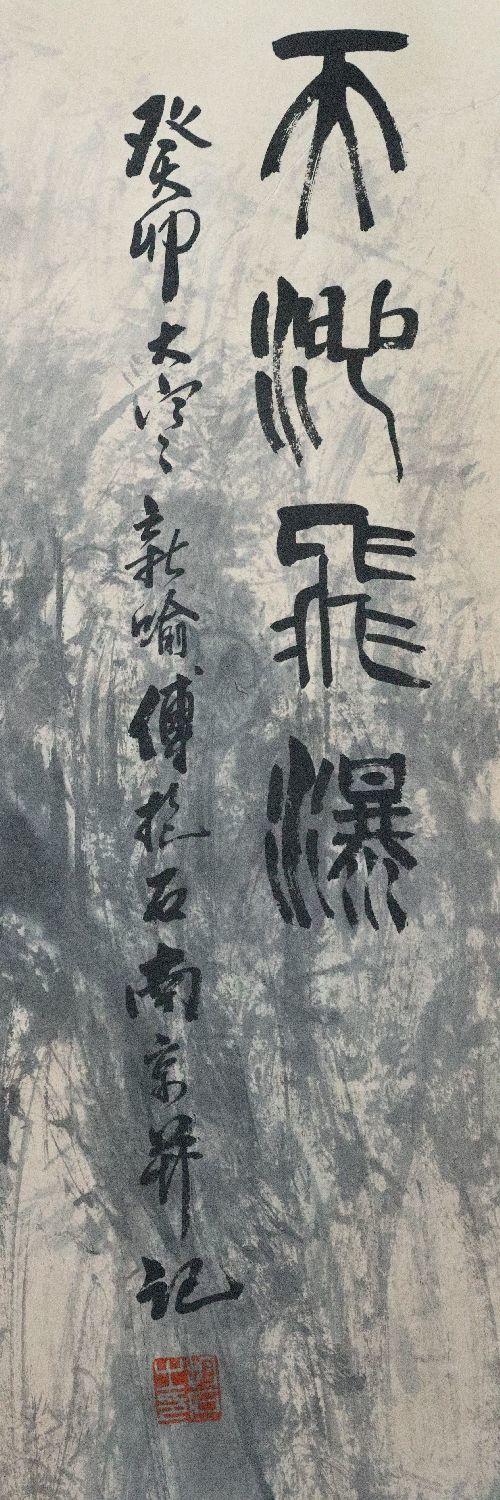 天池飛瀑
癸卯大寒新喻傅抱石南京并記